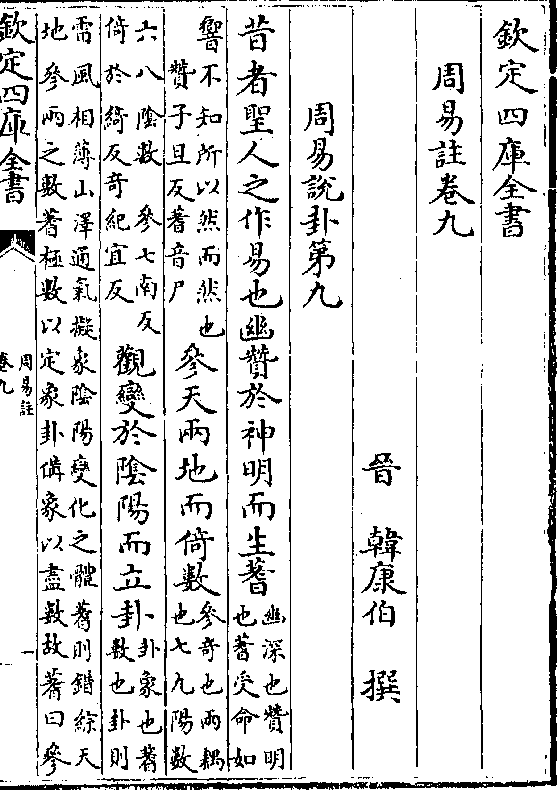 欽定四庫全書
周易註卷九
晉 韓康伯 撰
周易說卦第九
昔者聖人之作易也幽贊於神明而生蓍幽深也贊明也蓍受命如
響不知所以然而然也贊子旦反蓍音尸參天兩地而倚數參奇也兩耦也七九陽數
六八陰數 參七南反倚於綺反奇紀宜反觀變於陰陽而立卦卦象也蓍數也卦則
雷風相薄山澤通氣擬象陰陽變化之體蓍則錯綜天
地參兩之數蓍極數以定象卦備象以盡數故蓍曰參
欽定四庫全書
周易註
卷九
一